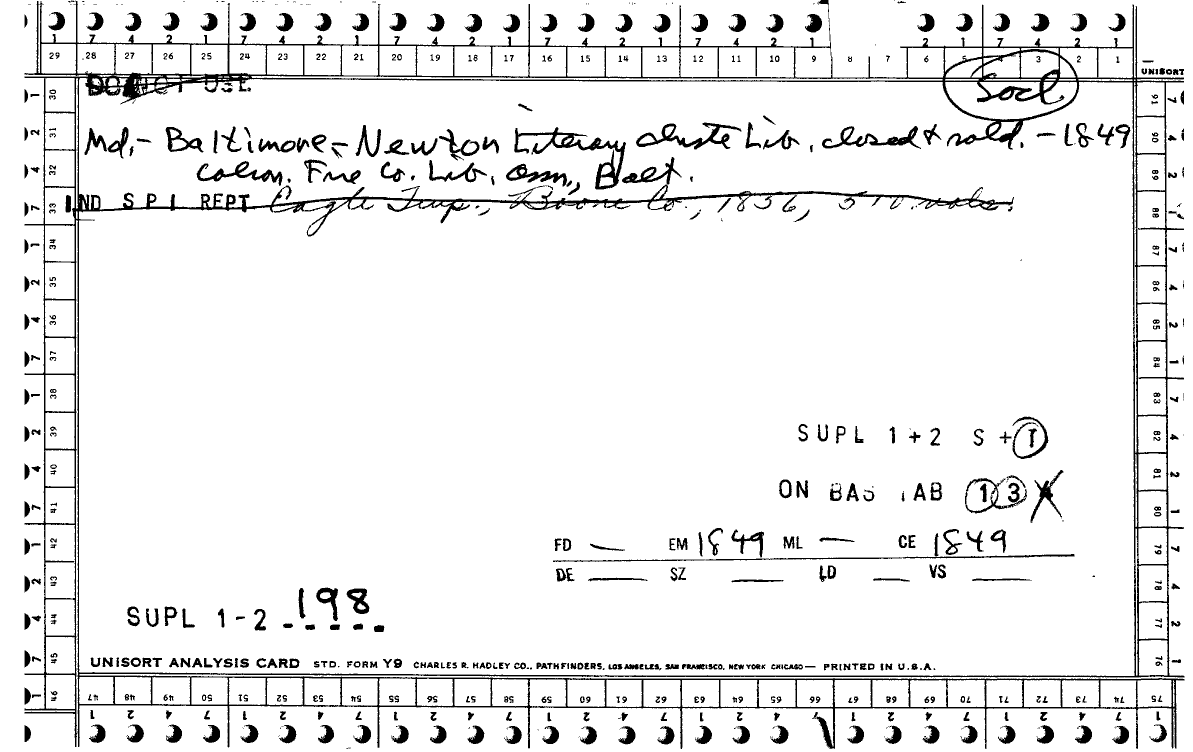 1 7 4 2 1 7 4 2 1 7 4 2 1 7 4 2 1 7 4 2 1 2 1 7 4 2 1
29 28 27 26 25 24 23 22 21 20 19 18 17 16 15 14 13 12 11 10 9 8 7 6 5 4 3 2 1
UNISORT
DO NOT USE
Socl.
Md.- Baltimore - Newton Literary Lib. closed & sold. - 1849
Fire Co. Lib. Assn., Balt.
IND S P I REPT Eagle Twp., Boone Co., 1856, 310 vols.
SUPL 1+2 S + T
ON BAS TAB 1 3 4
FD — EM 1849 ML — CE 1849
DE ___ SZ ___ LD ___ VS ___
SUPL 1-2 198
UNISORT ANALYSIS CARD STD. FORM Y9 CHARLES R. HADLEY CO., PATHFINDERS, LOS ANGELES, SAN FRANCISCO, NEW YORK CHICAGO — PRINTED IN U.S.A.
47 48 49 50 51 52 53 54 55 56 57 58 59 60 61 62 63 64 65 66 67 68 69 70 71 72 73 74 75